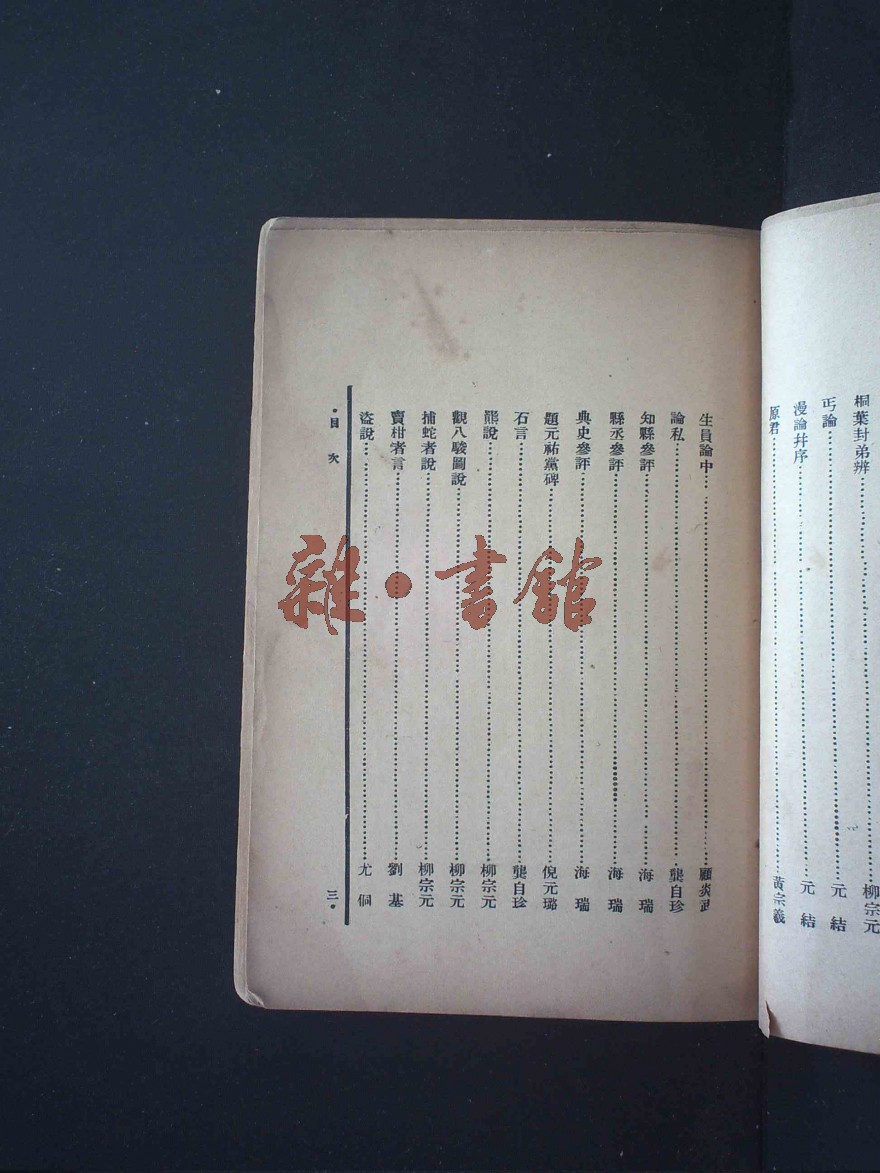 桐葉封弟辨……柳宗元
丐論……元結
漫論幷序……元結
原君……黃宗羲
生員論中……顧炎武
論私……龔自珍
知縣參評……海瑞
縣丞參評……海瑞
典史參評……海瑞
題元祐黨碑……倪元璐
石言……龔自珍
熊說……柳宗元
觀八駿圖說……柳宗元
捕蛇者說……柳宗元
賣柑者言……劉基
盜說……尤侗
·目次
三·
雜·書館